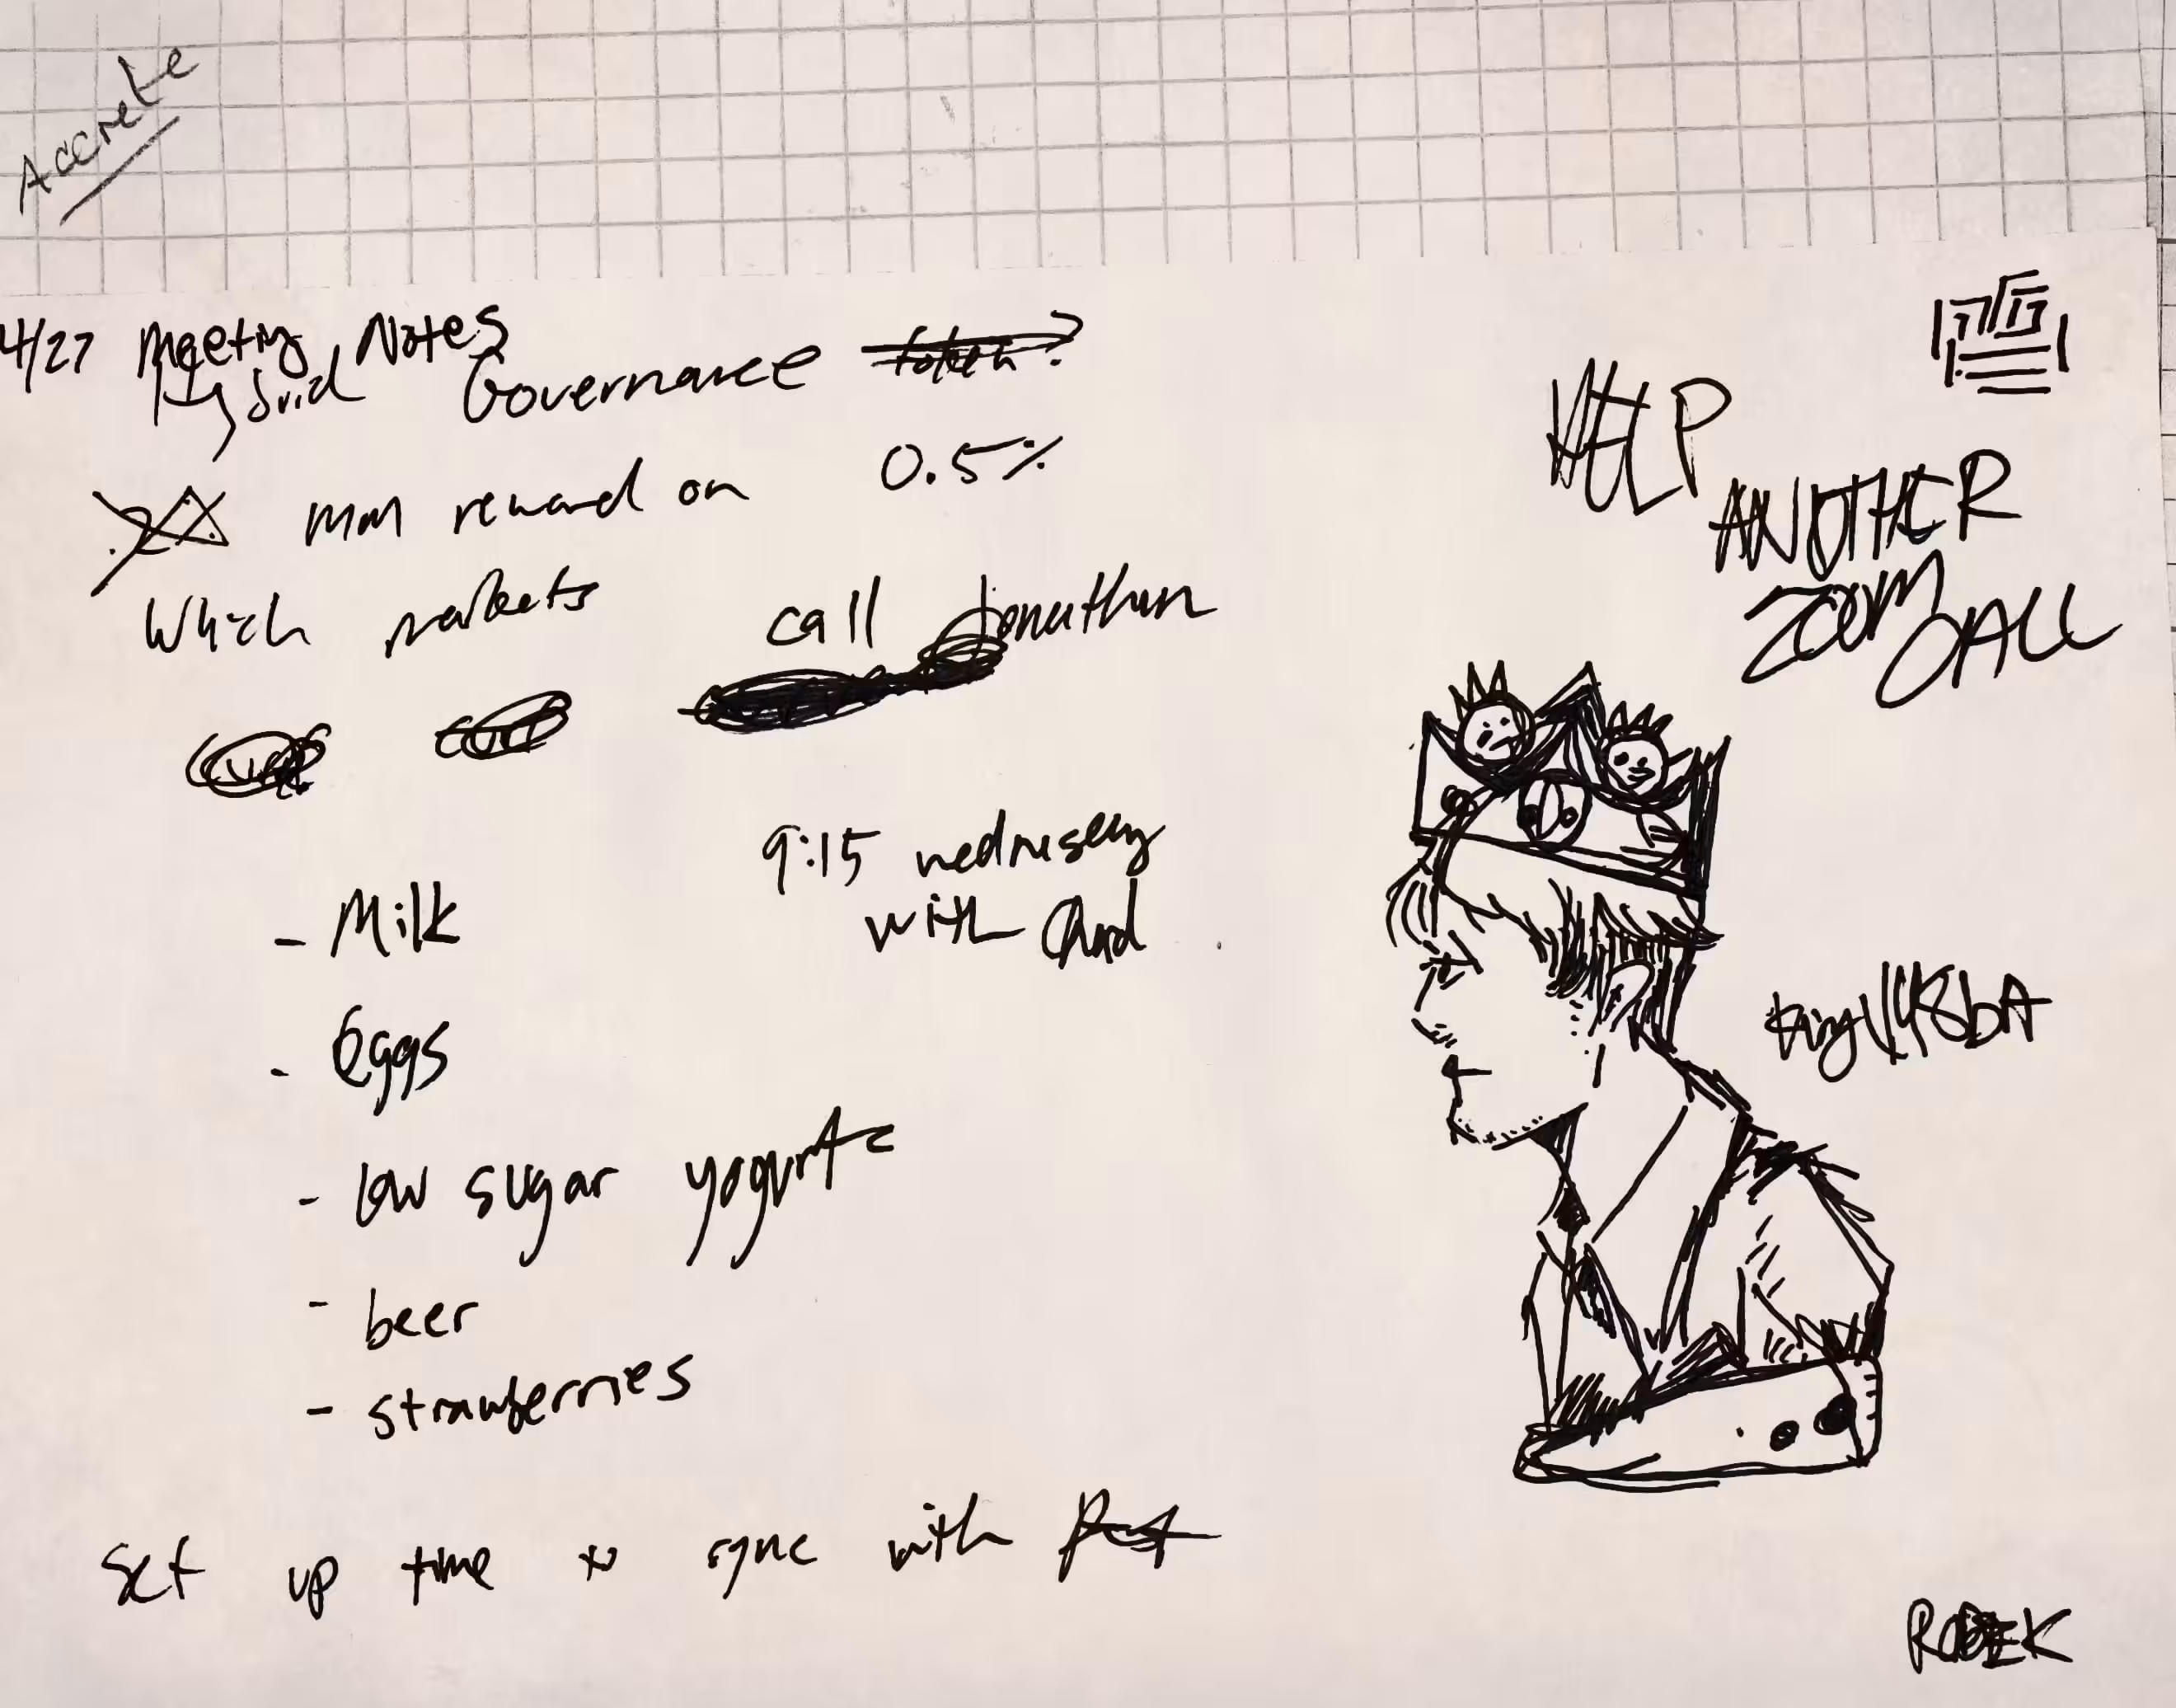 Accrete
4/27 Meeting Notes
Hybrid Governance token?
mm reward on 0.5%
Which markets
call Jonathan
9:15 wednesday
with
- Milk
- Eggs
- low sugar yogurt
- beer
- strawberries
Set up time to sync with
HELP
ANOTHER
ZOOM CALL